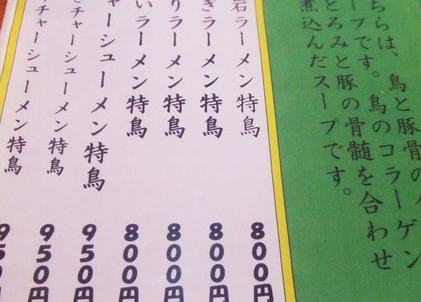 ちらは、鳥と豚骨の
ープです。鳥のコラーゲン
とろみと豚の骨髄を合わせ
煮込んだスープです。
岩ラーメン特鳥 800円
ぎラーメン特鳥 800円
りラーメン特鳥 800円
いラーメン特鳥 800円
ャーシューメン特鳥 950円
チャーシューメン特鳥 950円
チャーシューメン特鳥 950円